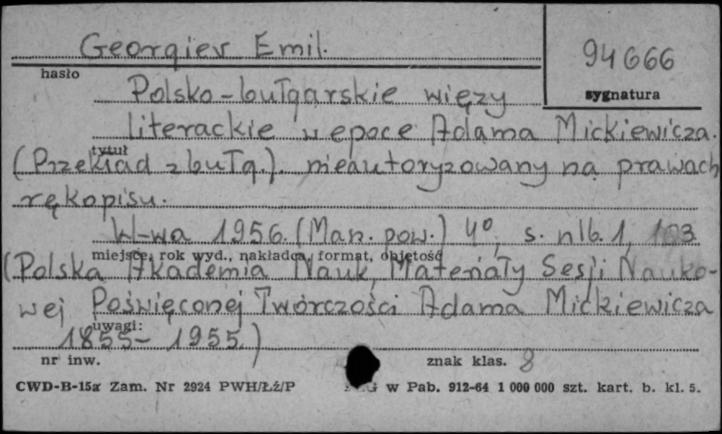 Georgiev Emil.
94666
hasło
sygnatura
Polsko-bułgarskie więzy
literackie w epoce Adama Mickiewicza.
tytuł
(Przekład z bułg.). nieautoryzowany na prawach
rękopisu.
W-wa 1956. (Man. pow.) 4°, s. nlb. 1, 103
miejsce, rok wyd., nakładca, format, objętość
(Polska Akademia Nauk, Materiały Sesji Nauko-
wej Poświęconej Twórczości Adama Mickiewicza
uwagi:
1855-1955.)
nr inw.
znak klas. 8
CWD-B-15a Zam. Nr 2924 PWH/Łź/P
w Pab. 912-64 1 000 000 szt. kart. b. kl. 5.